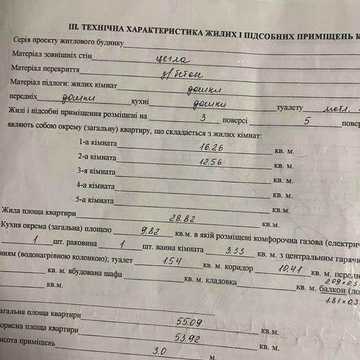 III. ТЕХНІЧНА ХАРАКТЕРИСТИКА ЖИЛИХ І ПІДСОБНИХ ПРИМІЩЕНЬ К
Серія проєкту житлового будинку
Матеріал зовнішніх стін цегла
Матеріал перекриття з/бетон
Матеріал підлоги: жилих кімнат дошки
передніх дошки кухні дошки туалету
Жилі і підсобні приміщення розміщені на 3 поверсі 5 повер
являють собою окрему (загальну) квартиру, що складається з жилих кімнат:
1-а кімната 16.26 кв. м.
2-а кімната 12.56 кв. м.
3-я кімната кв. м.
4-а кімната кв. м.
5-а кімната кв. м.
Жила площа квартири 28.82 кв. м.
Кухня окрема (загальна) площею 9.82 кв.м. в якій розміщені комфорочна газова (електри
1 шт. раковина 1 шт. ванна кімната 3.33 кв. м. з центральним гаряч
ним (водонагрівною колонкою); туалет 1.54 кв. м. коридор 10.41 кв. м. перед
кв. м. вбудована шафа кв. м. кладовка кв. м. балкон (ло
1.81×0.3
загальна площа квартири 55.09 кв. м.
корисна площа квартири 53.92 кв. м.
висота приміщень 3.0 м.